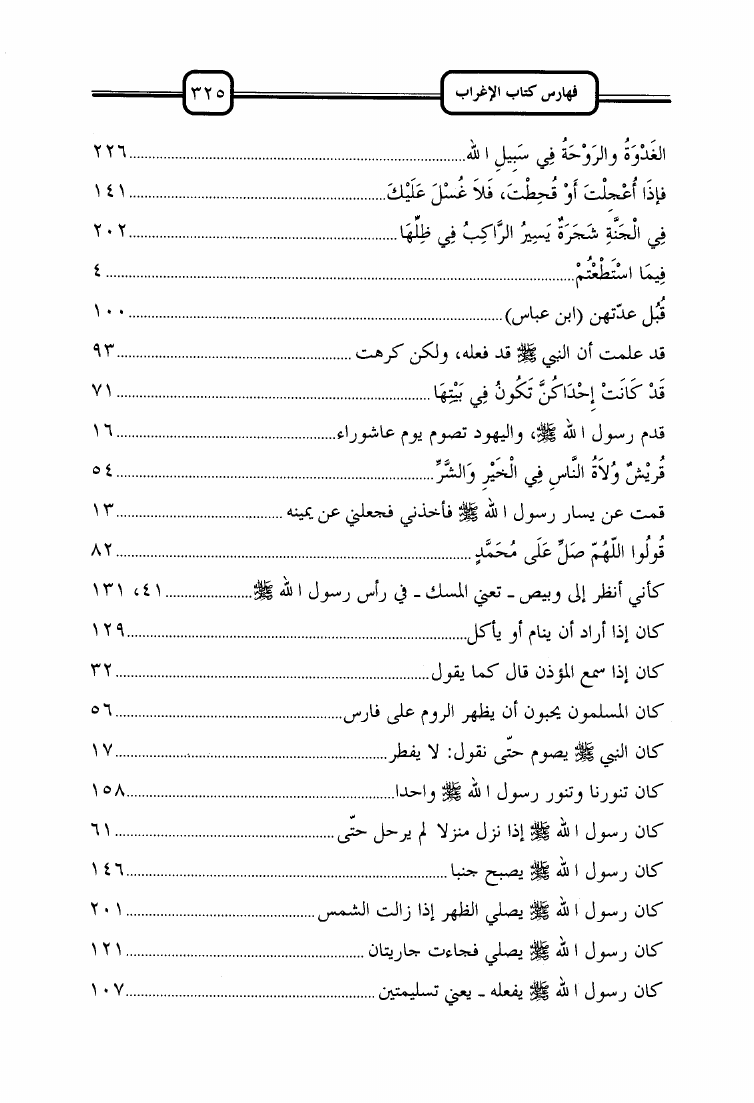 فهارس كتاب الإغراب ٣٢٥
الغَدْوَةُ والرَوْحَةُ فِي سَبِيلِ الله ٢٢٦
فإِذَا أُعْجِلْتَ أَوْ قُحِطْتَ، فَلاَ غُسْلَ عَلَيْكَ ١٤١
فِي الْجَنَّةِ شَجَرَةٌ يَسِيرُ الرَّاكِبُ فِي ظِلِّهَا ٢٠٢
فِيمَا اسْتَطَعْتُمْ ٤
قُبُل عدّتهن (ابن عباس) ١٠٠
قد علمت أن النبي ﷺ قد فعله، ولكن كرهت ٩٣
قَدْ كَانَتْ إِحْدَاكُنَّ تَكُونُ فِي بَيْتِهَا ٧١
قدم رسول الله ﷺ، واليهود تصوم يوم عاشوراء ١٦
قُرَيْشٌ وُلاَةُ النَّاسِ فِي الْخَيْرِ وَالشَّرِّ ٥٤
قمت عن يسار رسول الله ﷺ فأخذني فجعلني عن يمينه ١٣
قُولُوا اللَّهُمّ صَلِّ عَلَى مُحَمَّدٍ ٨٢
كأني أنظر إلى وبيص - تعني المسك - في رأس رسول الله ﷺ ٤١، ١٣١
كان إذا أراد أن ينام أو يأكل ١٢٩
كان إذا سمع المؤذن قال كما يقول ٣٢
كان المسلمون يحبون أن يظهر الروم على فارس ٥٦
كان النبي ﷺ يصوم حتّى نقول: لا يفطر ١٧
كان تنورنا وتنور رسول الله ﷺ واحدا ١٥٨
كان رسول الله ﷺ إذا نزل منزلا لم يرحل حتّى ٦١
كان رسول الله ﷺ يصبح جنبا ١٤٦
كان رسول الله ﷺ يصلي الظهر إذا زالت الشمس ٢٠١
كان رسول الله ﷺ يصلي فجاءت جاريتان ١٢١
كان رسول الله ﷺ يفعله - يعني تسليمتين ١٠٧